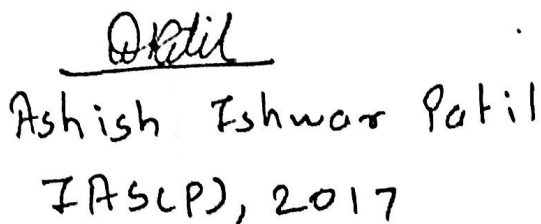 Ashish Ishwar Patil
IAS(P), 2017